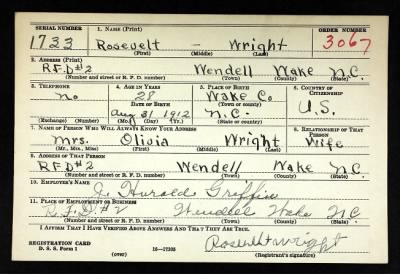 SERIAL NUMBER 1. NAME (Print) ORDER NUMBER
1723 Rosevelt - Wright 3067
(First) (Middle) (Last)
2. ADDRESS (Print)
R.F.D#2 Wendell Wake N.C.
(Number and street or R. F. D. number) (Town) (County) (State)
3. TELEPHONE 4. AGE IN YEARS 5. PLACE OF BIRTH 6. COUNTRY OF CITIZENSHIP
No 28 Wake Co
DATE OF BIRTH (Town or county)
Aug 31 1912 N.C. U.S.
(Exchange) (Number) (Mo.) (Day) (Yr.) (State or country)
7. NAME OF PERSON WHO WILL ALWAYS KNOW YOUR ADDRESS 8. RELATIONSHIP OF THAT PERSON
Mrs. Olivia Wright Wife
(Mr., Mrs., Miss) (First) (Middle) (Last)
9. ADDRESS OF THAT PERSON
R.F.D#2 Wendell Wake NC
(Number and street or R. F. D. number) (Town) (County) (State)
10. EMPLOYER'S NAME
J. Harold Griffin
11. PLACE OF EMPLOYMENT OR BUSINESS
R.F.D.#2 Wendell Wake NC
(Number and street or R. F. D. number) (Town) (County) (State)
I AFFIRM THAT I HAVE VERIFIED ABOVE ANSWERS AND THAT THEY ARE TRUE.
REGISTRATION CARD
D. S. S. Form 1 (over) Rosevelt Wright
(Registrant's signature)